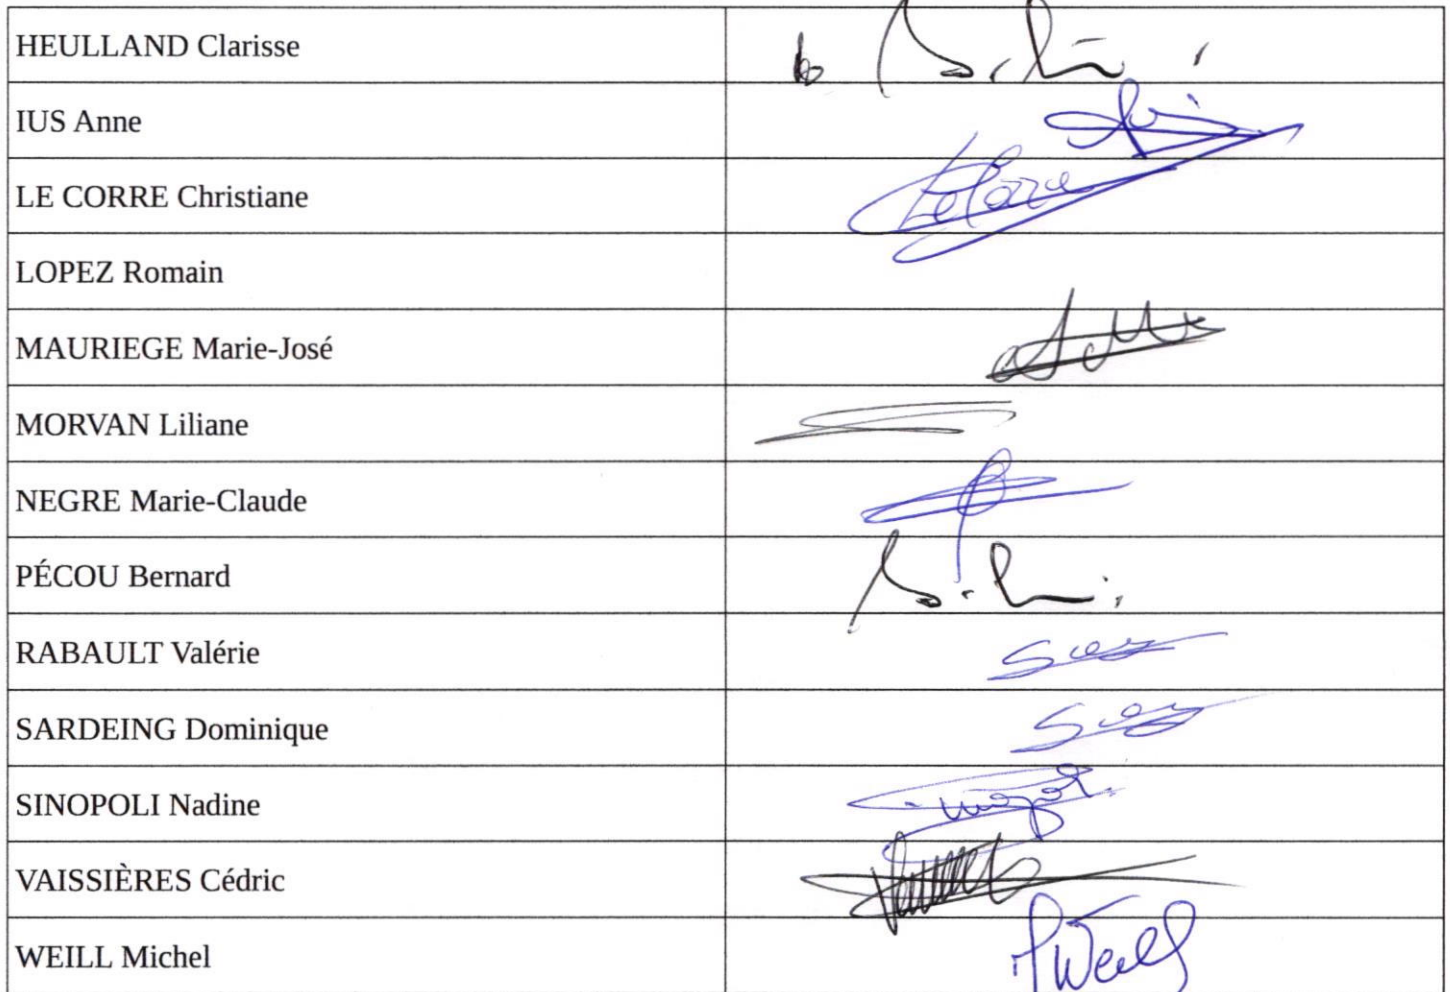 HEULLAND Clarisse
IUS Anne
LE CORRE Christiane
LeCorre
LOPEZ Romain
MAURIEGE Marie-José
MORVAN Liliane
NEGRE Marie-Claude
PÉCOU Bernard
RABAULT Valérie
SARDEING Dominique
SINOPOLI Nadine
VAISSIÈRES Cédric
WEILL Michel
MWeill